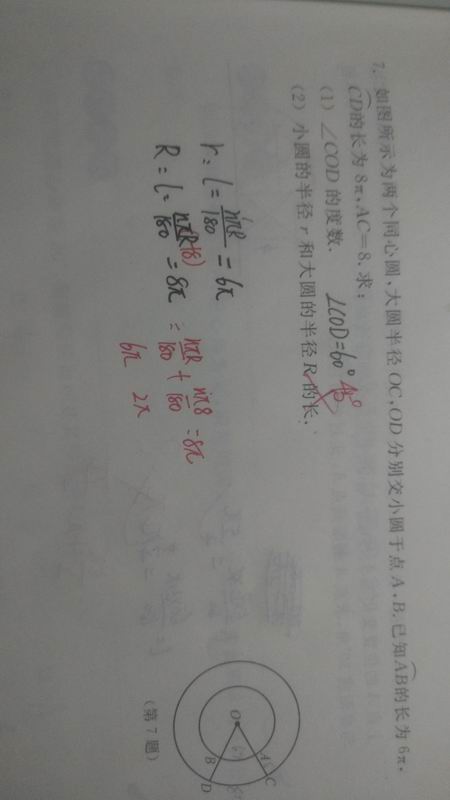 7. 如图所示为两个同心圆,大圆半径 OC,OD 分别交小圆于点 A,B.已知 AB 的长为 6π,
CD 的长为 8π,AC=8.求:
(1) ∠COD 的度数.
∠COD=60° 45°
(2) 小圆的半径 r 和大圆的半径 R 的长.
r: l = nπR/180 = 6π
R = l = nπ(R+8)/180 = 8π = nπR/180 + nπ8/180 = 8π
6π 2π
O
A
C
B
D
(第 7 题)